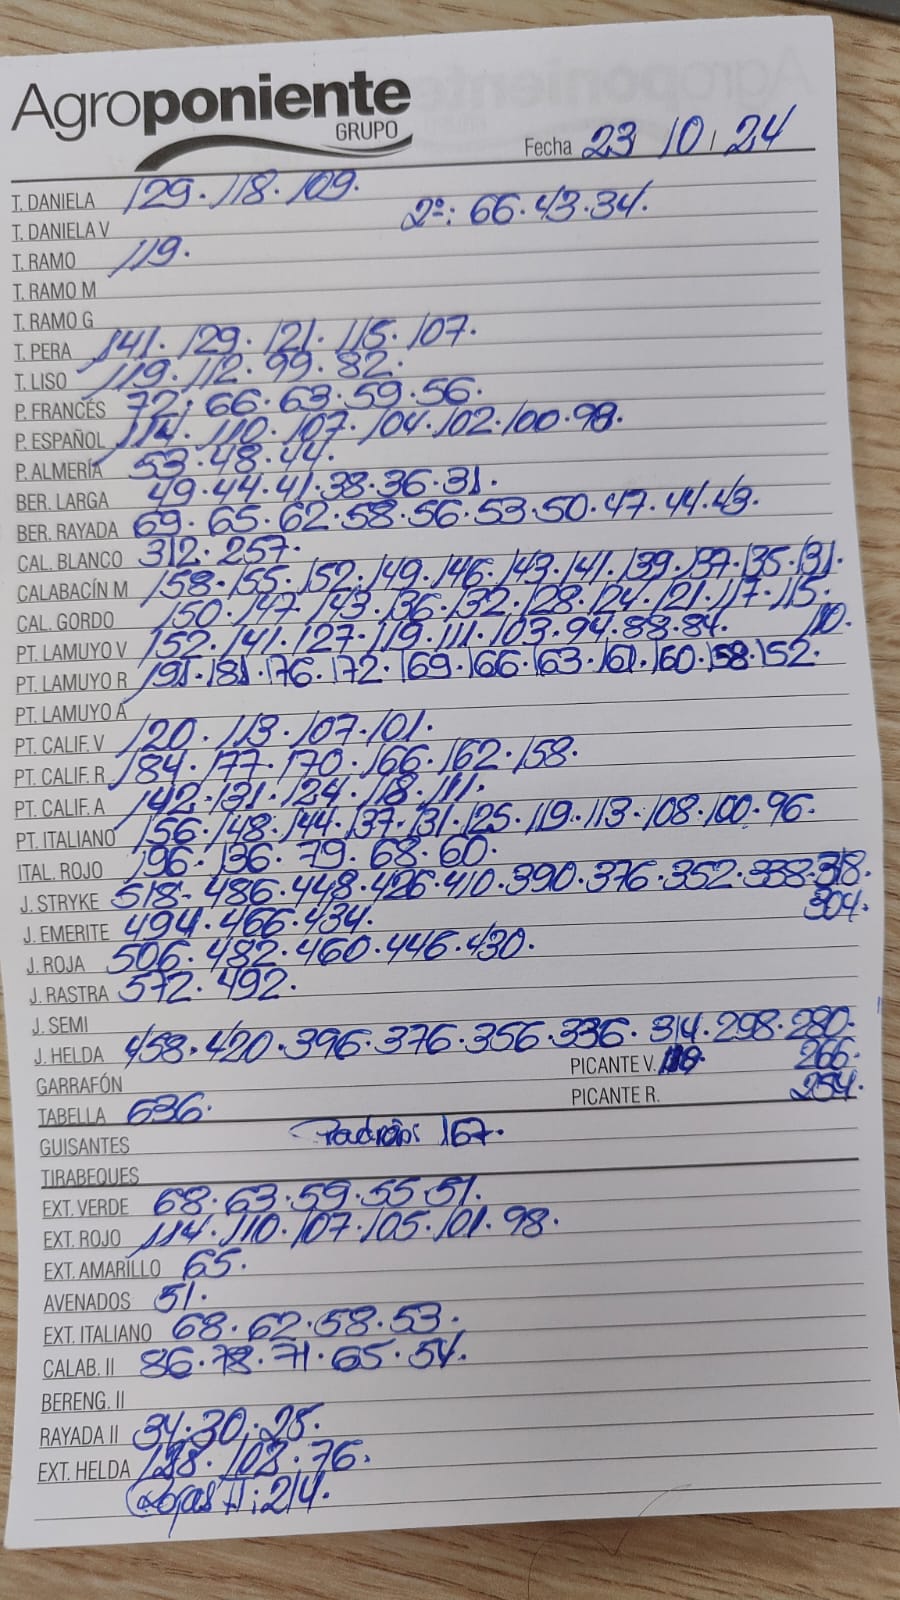 Agroponiente
GRUPO
Fecha 23/10/24
T. DANIELA 129.118.109.
T. DANELA V 2ª: 66.43.34.
T. RAMO 119.
T. RAMO M
T. RAMO G
T. PERA 141.129.121.115.107.
T. LISO 119.112.99.82.
P. FRANCÉS 72.66.63.59.56.
P. ESPAÑOL 114.110.107.104.102.100.98.
P. ALMERÍA 53.48.44.
BER. LARGA 49.44.41.38.36.31.
BER. RAYADA 69.65.62.58.56.53.50.47.44.43.
CAL. BLANCO 312.257.
CALABACÍN M 158.155.152.149.146.143.141.139.137.135.131.
CAL. GORDO 150.147.143.136.132.128.124.121.117.115.
110.
PT. LAMUYO V 152.141.127.119.111.103.94.88.84.
PT. LAMUYO R 191.181.176.172.169.166.163.161.160.158.152.
PT. LAMUYO A
PT. CALIF. V 120.113.107.101.
PT. CALIF. R 184.177.170.166.162.158.
PT. CALIF. A 142.131.124.118.111.
PT. ITALIANO 156.148.144.137.131.125.119.113.108.100.96.
ITAL. ROJO 196.136.79.68.60.
J. STRYKE 518.486.448.426.410.390.376.352.338.318.
304.
J. EMERITE 494.466.434.
J. ROJA 506.482.460.446.430.
J. RASTRA 572.492.
J. SEMI
J. HELDA 458.420.396.376.356.336.314.298.280.
266.
254.
GARRAFÓN PICANTE V.
TABELLA 636. PICANTE R.
GUISANTES Padrón: 167.
TIRABEQUES
EXT. VERDE 68.63.59.55.51.
EXT. ROJO 114.110.107.105.101.98.
EXT. AMARILLO 65.
AVENADOS 51.
EXT. ITALIANO 68.62.58.53.
CALAB. II 86.78.71.65.54.
BERENG. II
RAYADA II 34.30.25.
EXT. HELDA 128.102.76.
Rojas II: 214.